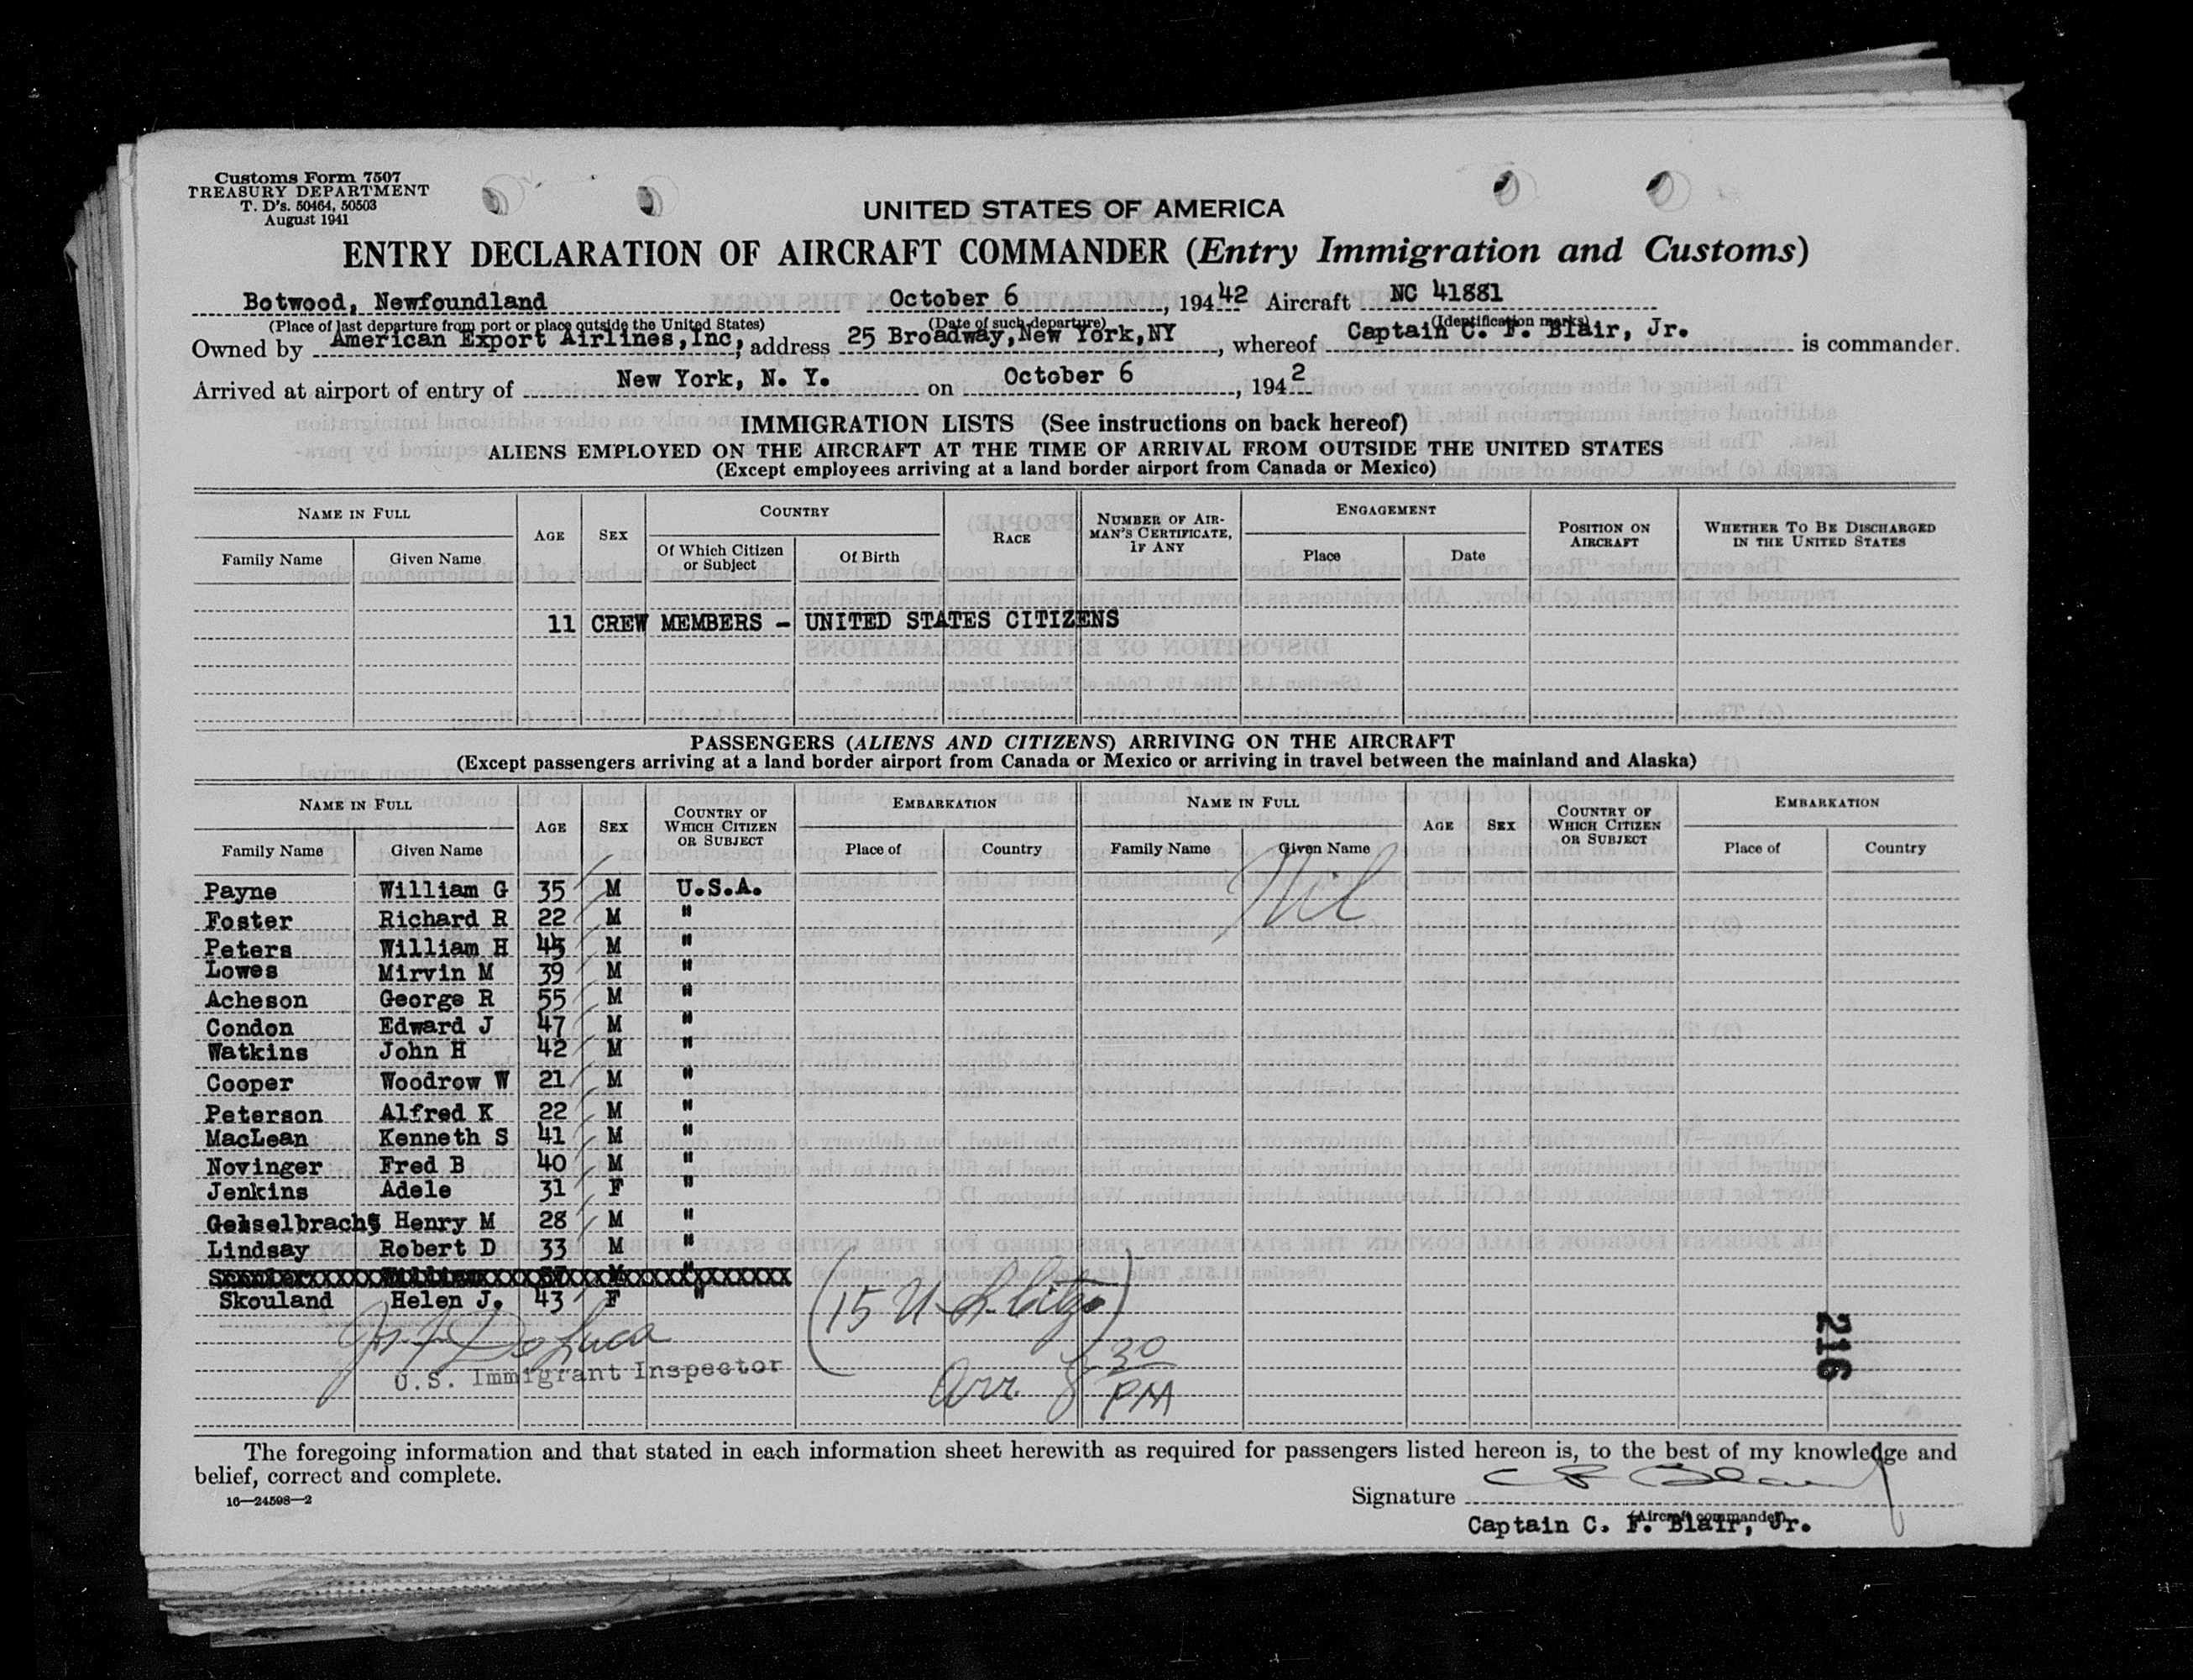 Customs Form 7507
TREASURY DEPARTMENT
T. D's. 50464, 50503
August 1941
UNITED STATES OF AMERICA
ENTRY DECLARATION OF AIRCRAFT COMMANDER (Entry Immigration and Customs)
Botwood, Newfoundland October 6, 194 42 Aircraft NC 41881
(Place of last departure from port or place outside the United States) (Date of such departure) (Identification marks)
Owned by American Export Airlines,Inc, address 25 Broadway,New York,NY, whereof Captain C. F. Blair, Jr. is commander.
Arrived at airport of entry of New York, N. Y. on October 6, 1942
IMMIGRATION LISTS (See instructions on back hereof)
ALIENS EMPLOYED ON THE AIRCRAFT AT THE TIME OF ARRIVAL FROM OUTSIDE THE UNITED STATES
(Except employees arriving at a land border airport from Canada or Mexico)
NAME IN FULL AGE SEX COUNTRY RACE NUMBER OF AIRMAN'S CERTIFICATE, IF ANY ENGAGEMENT POSITION ON AIRCRAFT WHETHER TO BE DISCHARGED IN THE UNITED STATES
Family Name Given Name Of Which Citizen or Subject Of Birth Place Date
11 CREW MEMBERS - UNITED STATES CITIZENS
PASSENGERS (ALIENS AND CITIZENS) ARRIVING ON THE AIRCRAFT
(Except passengers arriving at a land border airport from Canada or Mexico or arriving in travel between the mainland and Alaska)
NAME IN FULL AGE SEX COUNTRY OF WHICH CITIZEN OR SUBJECT EMBARKATION NAME IN FULL AGE SEX COUNTRY OF WHICH CITIZEN OR SUBJECT EMBARKATION
Family Name Given Name Place of Country Family Name Given Name Place of Country
Nil
Payne William G 35 M U.S.A.
Foster Richard R 22 M "
Peters William H 45 M "
Lowes Mirvin M 39 M "
Acheson George R 55 M "
Condon Edward J 47 M "
Watkins John H 42 M "
Cooper Woodrow W 21 M "
Peterson Alfred K 22 M "
MacLean Kenneth S 41 M "
Novinger Fred B 40 M "
Jenkins Adele 31 F "
Henry M 28 M "
Lindsay Robert D 33 M "
Skouland Helen J. 43 F "
(15 U.S. Citzs)
De Luca
U.S. Immigrant Inspector
Arr. 8 30 PM
216
The foregoing information and that stated in each information sheet herewith as required for passengers listed hereon is, to the best of my knowledge and
belief, correct and complete.
16—24598—2
Signature C F Blair Jr
(Aircraft commander)
Captain C. F. Blair, Jr.